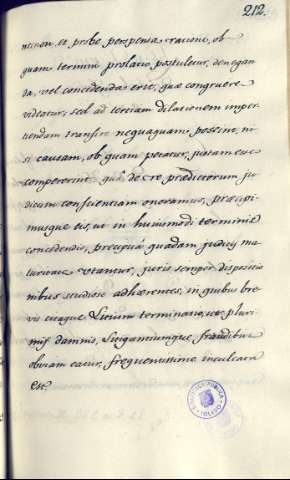 212.
ntinon, et probe perpensa ratione, ob
quam termini prolatio postuletur, denegan
da, vel concedenda erit, quæ congruere
videatur; sed ad tertiam dilationem imper
tiendam transire nequaquam possint, ni
si causam, ob quam petatur, justam esse
compererint: qua de re prædictorum ju
dicum conscientiam oneramus, præcipi
musque eis, ut in huiusmodi terminis
concedendis, precipuá quadam judicij ma
turitate utantur, juris semper dispositio
nibus studiose adhærentes, in quibus bre
vis litium terminatio, et pluri
mis damnis, Litigantiumque fraudibus
obviam eatur, frequentissime inculcata
est.
BIBLIOTECA PUBLICA
TOLEDO